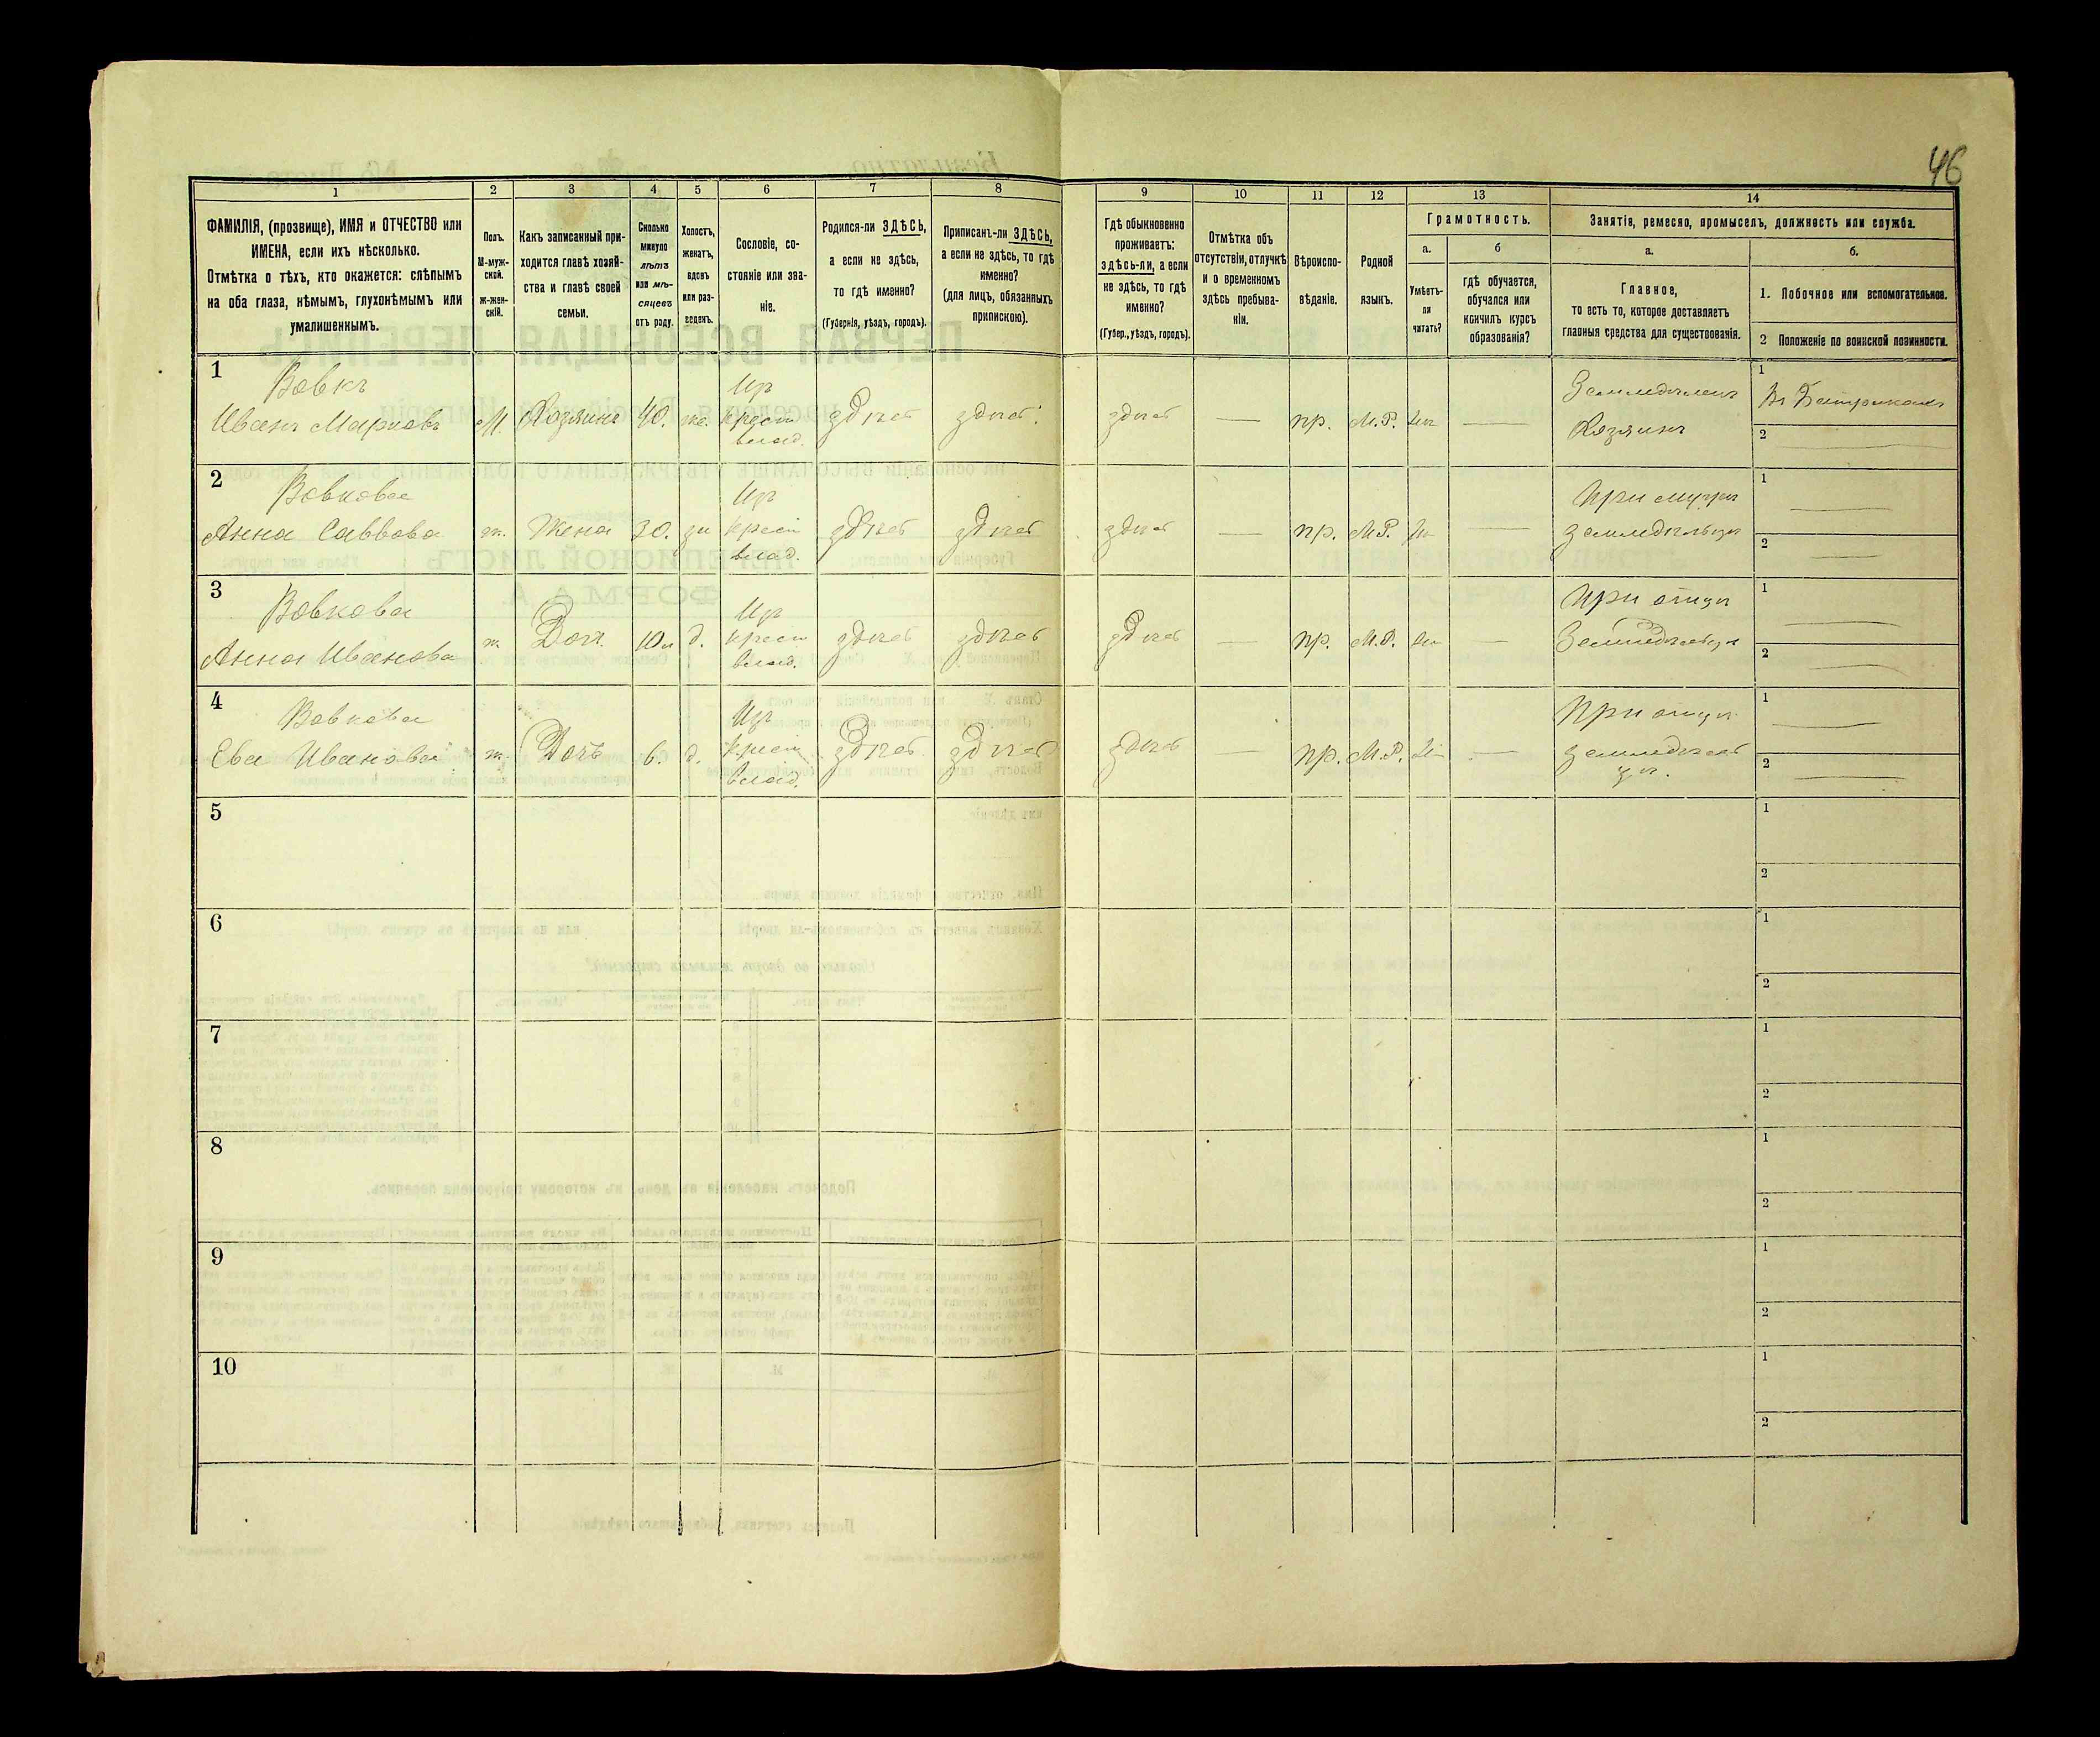 46
1 2 3 4 5 6 7 8 9 10 11 12 13 14
ФАМИЛІЯ, (прозвище), ИМЯ и ОТЧЕСТВО или
ИМЕНА, если ихъ нѣсколько.
Отмѣтка о тѣхъ, кто окажется: слѣпымъ
на оба глаза, нѣмымъ, глухонѣмымъ или
умалишеннымъ.
Полъ.
М-муж-
ской.
Ж-жен-
скій.
Какъ записанный при-
ходится главѣ хозяй-
ства и главѣ своей
семьи.
Сколько
минуло
лѣтъ
или мѣ-
сяцевъ
отъ роду.
Холостъ,
женатъ,
вдовъ
или раз-
веденъ.
Сословіе, со-
стояніе или зва-
ніе.
Родился-ли ЗДѢСЬ,
а если не здѣсь,
то гдѣ именно?
(Губернія, уѣздъ, городъ).
Приписанъ-ли ЗДѢСЬ,
а если не здѣсь, то гдѣ
именно?
(для лицъ, обязанныхъ
припискою).
Гдѣ обыкновенно
проживаетъ:
здѣсь-ли, а если
не здѣсь, то гдѣ
именно?
(Губер., уѣздъ, городъ).
Отмѣтка объ
отсутствіи, отлучкѣ
и о временномъ
здѣсь пребыва-
ніи.
Вѣроиспо-
вѣданіе.
Родной
языкъ.
Грамотность.
а.
Умѣетъ-
ли
читать?
б
гдѣ обучается,
обучался или
кончилъ курсъ
образованія?
Занятія, ремесло, промыселъ, должность или служба.
а.
Главное,
то есть то, которое доставляетъ
главныя средства для существованія.
б.
1. Побочное или вспомогательное.
2 Положеніе по воинской повинности.
1
Вовкъ
Иванъ Марковъ
М. Хозяинъ 40. же.
Из
крест
влад.
здѣсь здѣсь здѣсь — пр. М.Р.
Хазяинъ
1
2
2
Вовкова
Анна Саввова
ж. Жена 30. за
Из
крест
влад.
здѣсь здѣсь здѣсь — пр. М.Р. —
При мужѣ
1
2
3
Вовкова
Анна Иванова
ж. Доч. 10 д.
Из
крест
влад.
здѣсь здѣсь здѣсь — пр. М.Р. —
При отцѣ
1
2
4
Вовкова
Ева Иванова
ж. Дочъ 6. д.
Из
крест
влад.
здѣсь здѣсь здѣсь — пр. М.Р. —
При отцѣ
1
2
5
1
2
6
1
2
7
1
2
8
1
2
9
1
2
10
1
2